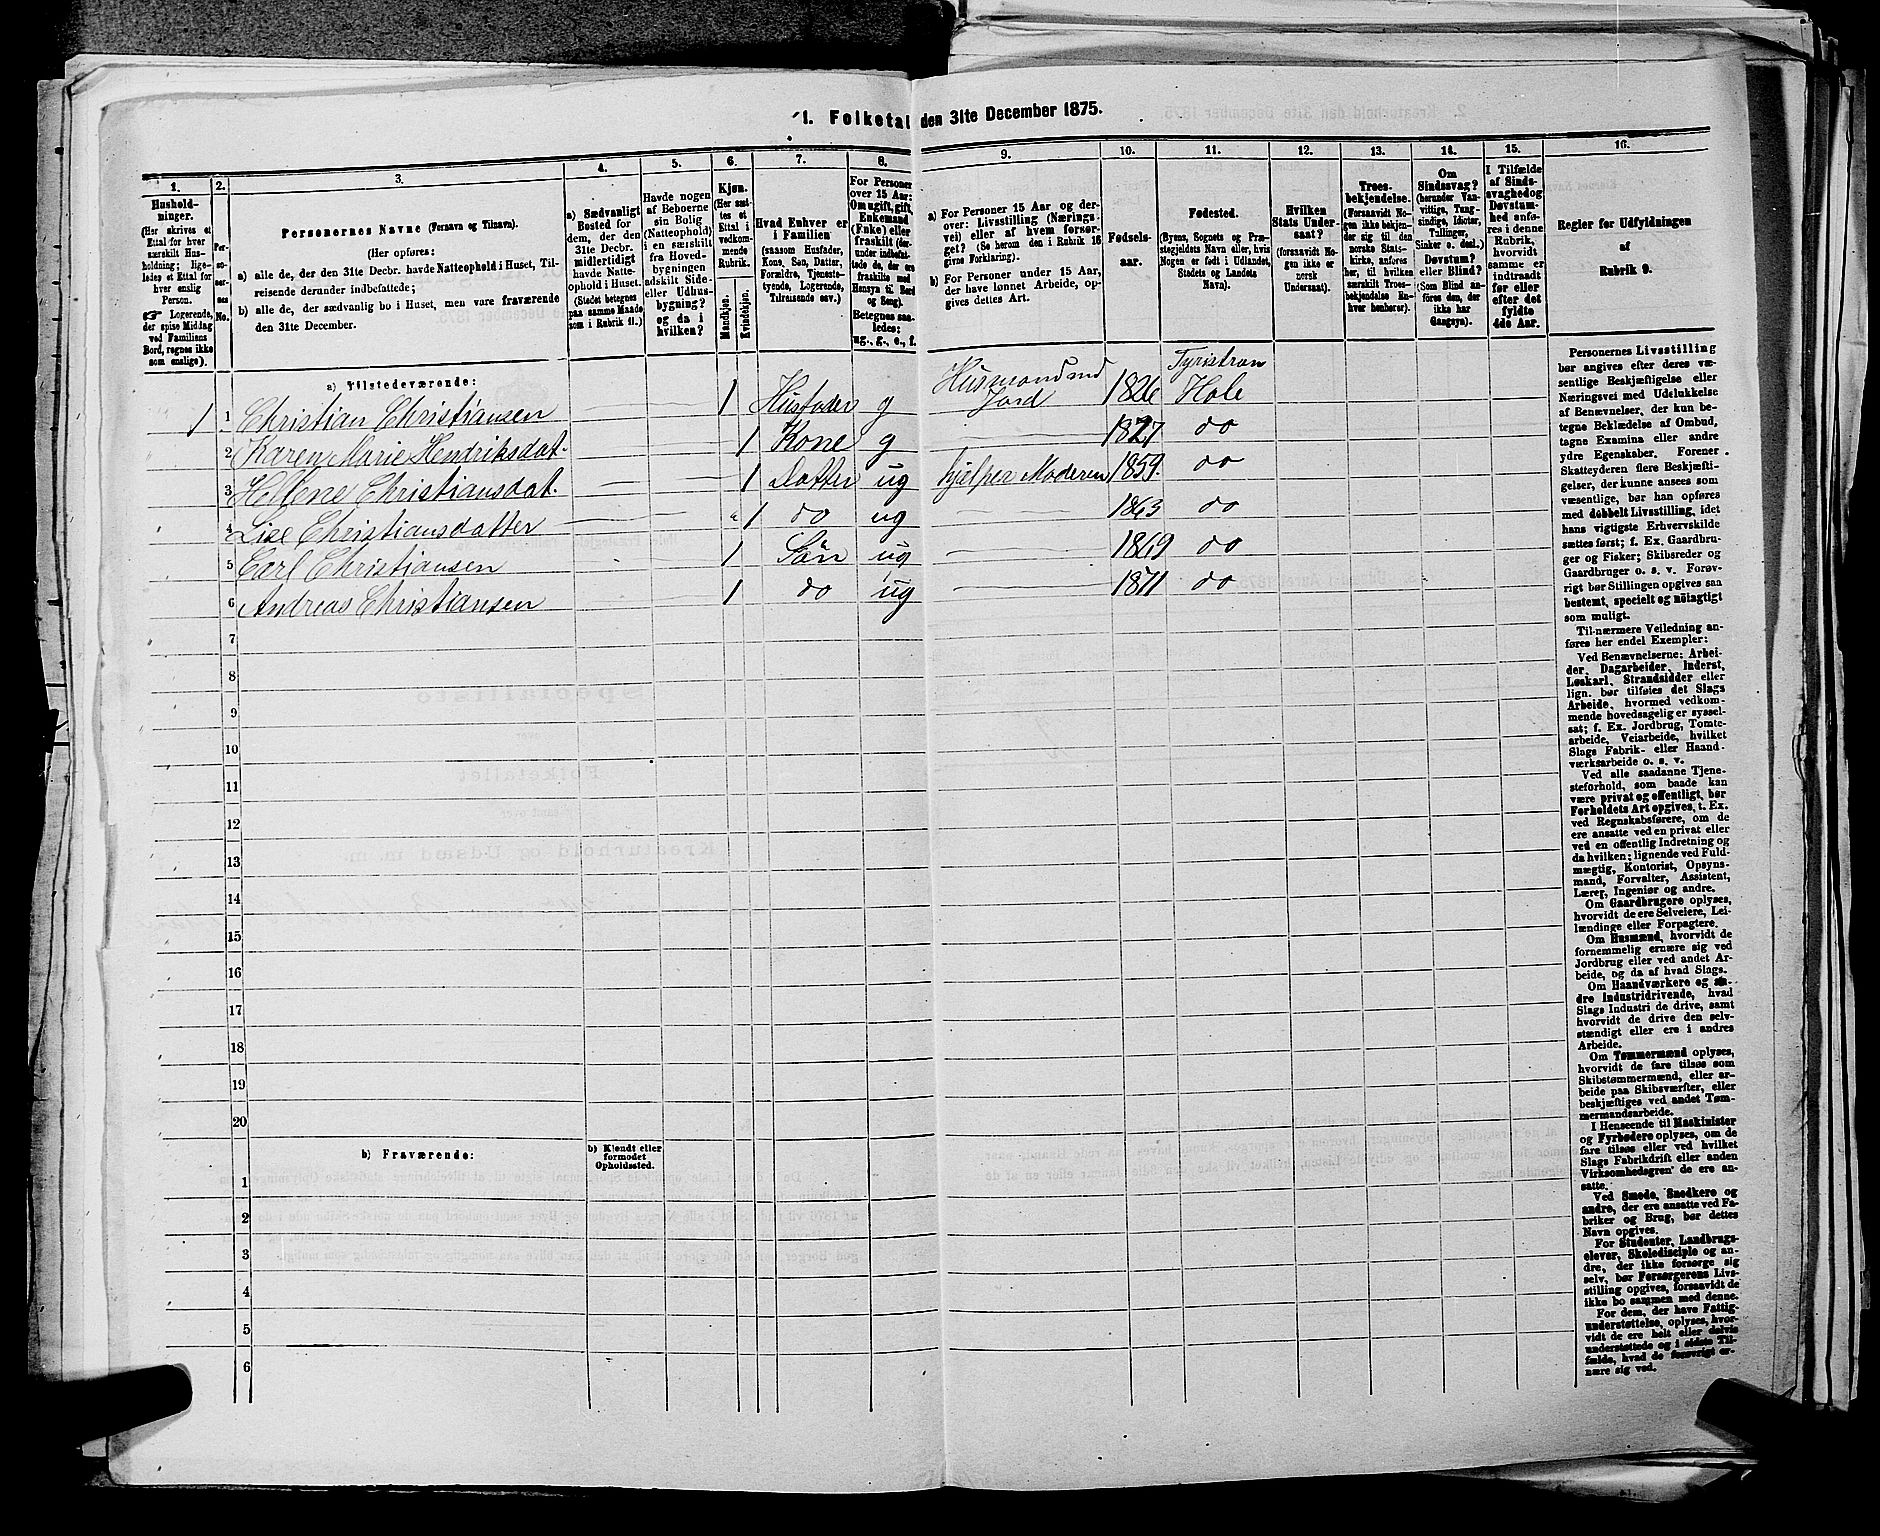 1. Folketal den 31te December 1875.
1. 2. 3. 4. 5. 6. 7. 8. 9. 10. 11. 12. 13. 14. 15. 16.
Hushold-
ninger.
(Her skrives et
Ettal for hver
særskilt Hus-
holdning; lige-
ledes et Ettal for
hver enslig
Person.
☞ Logerende,
der spise Middag
ved Familiens
Bord, regnes ikke
som enslige).
Per-
so-
ner-
nes
No.
Personernes Navne (Fornavn og Tilnavn).
(Her opføres:
a) alle de, der den 31te Decbr. havde Natteophold i Huset, Til-
reisende derunder indbefattede;
b) alle de, der sædvanlig bo i Huset, men vare fraværende
den 31te December.
a) Sædvanligt
Bosted for
dem, der den
31te Decbr.
midlertidigt
havde Natte-
ophold i Huset.
(Stedet betegnes
paa samme Maade
som i Rubrik 11.)
Havde nogen
af Beboerne
sin Bolig
(Natteophold)
i en særskilt
fra Hoved-
bygningen
adskilt Side-
eller Udhus-
bygning?
og da i
hvilken?
Kjøn.
(Her sæt-
tes et
Ettal i
vedkom-
mende
Rubrik.
Mandkjøn.
Kvindekjøn.
Hvad Enhver er
i Familien
(saasom Husfader,
Kone, Søn, Datter,
Forældre, Tjeneste-
tyende, Logerende,
Tilreisende osv.)
For Personer
over 15 Aar:
Om ugift, gift,
Enkemand
(Enke) eller
fraskilt (der-
under indbefat-
tede de, der ere
fraskilte med
Hensyn til Bord
og Seng).
Betegnes saa-
ledes:
ug., g., e., f.
a) For Personer 15 Aar og der-
over: Livsstilling (Nærings-
vei) eller af hvem forsør-
get? (Se herom den i Rubrik 16
givne Forklaring).
b) For Personer under 15 Aar,
der have lønnet Arbeide, op-
gives dettes Art.
Fødsels-
aar.
Fødested.
(Byens, Sognets og Præ-
stegjeldets Navn eller, hvis
Nogen er født i Udlandet,
Stedets og Landets
Navn).
Hvilken
Stats Under-
saat?
(forsaavidt No-
gen ikke er
norsk
Undersaat).
Troes-
bekjendelse.
(Forsaavidt No-
gen ikke bekjen-
der sig til den
norske Stats-
kirke, anføres
her, til hvilken
særskilt Troes-
bekjendelse En-
hver henhører).
Om
Sindssvag?
(herunder Van-
vittige, Tung-
sindige, Idioter,
Tullinger,
Sinker o. desl.)
Døvstum?
eller Blind?
(Som Blind an-
føres den, der
ikke har
Gangsyn).
I Tilfælde
af Sinds-
svaghed og
Døvstum-
hed anfø-
res i denne
Rubrik,
hvorvidt
samme er
indtraadt
før eller
efter det
fyldte
4de Aar.
Regler for Udfyldningen
af
Rubrik 9.
a) Tilstedeværende:
1 1 Christian Christiansen 1 Husfader g Husmand md Jord 1826 Tyristran Hole
2 Karen Marie Hendriksdat. 1 Kone g 1827 do
3 Hellene Christiansdat. 1 Datter ug hjelper Moderen 1859. do
4 Lise Christiansdatter 1 do ug 1863 do
5 Carl Christiansen 1 Søn ug 1869 do
6 Andreas Christiansen 1 do ug 1871 do
7
8
9
10
11
12
13
14
15
16
17
18
19
20
b) Fraværende:
b) Kjendt eller
formodet
Opholdssted.
1
2
3
4
5
6
Personernes Livsstilling
bør angives efter deres væ-
sentlige Beskjæftigelse eller
Næringsvei med Udelukkelse
af Benævnelser, der kun be-
tegne Beklædelse af Ombud,
tagne Examina eller andre
ydre Egenskaber. Forener
Skatteyderen flere Beskjæfti-
gelser, der kunne ansees som
væsentlige, bør han opføres
med dobbelt Livsstilling, idet
hans vigtigste Erhvervskilde
sættes først; f. Ex. Gaardbru-
ger og Fisker; Skibsreder og
Gaardbruger o. s. v. Forøv-
rigt bør Stillingen opgives saa
bestemt, specielt og nöiagtigt
som muligt.
Til nærmere Veiledning an-
føres her endel Exempler:
Ved Benævnelserne: Arbei-
der, Dagarbeider, Inderst,
Løskarl, Strandsidder eller
lign. bør tilføies det Slags
Arbeide, hvormed vedkom-
mende hovedsagelig er syssel-
sat; f. Ex. Jordbrug, Tomte-
arbeide, Veiarbeide, hvilket
Slags Fabrik- eller Haand-
værksarbeide o. s. v.
Ved alle saadanne Tjene-
steforhold, som baade kan
være privat og offentligt, bør
Forholdets Art opgives, t. Ex.
ved Regnskabsførere, om de
ere ansatte ved en privat eller
ved en offentlig Indretning og
da hvilken; lignende ved Fuld-
mægtig, Kontorist, Opsyns-
mand, Forvalter, Assistent,
Lærer, Ingeniør og andre.
Om Gaardbrugere oplyses,
hvorvidt de ere Selveiere, Lei-
lændinge eller Forpagtere.
Om Husmænd, hvorvidt de
fornemmelig ernære sig ved
Jordbrug eller ved andet Ar-
beide, og da af hvad Slags.
Om Haandværkere og an-
dre Industridrivende, hvad
Slags Industri de drive, samt
hvorvidt de drive den selv-
stændigt eller ere i andres
Arbeide.
Om Tømmermænd oplyses,
hvorvidt de fare tilsøs som
Skibstømmermænd, eller ar-
beide paa Skibsværfter, eller
beskjæftiges ved andet Tøm-
mermandsarbeide.
I Henseende til Maskinister
og Fyrbødere oplyses, om de
fare tilsøs eller ved hvilket
Slags Fabrikdrift eller anden
Virksomhedsgren de ere an-
satte.
Ved Smede, Snedkere og
andre, der ere ansatte ved Fa-
briker og Brug, bør dettes
Navn opgives.
For Studenter, Landbrugs-
elever, Skoledisciple og an-
dre, der ikke forsørge sig
selv, bør Forsørgerens Livs-
stilling opgives, forsaavidt de
ikke bo sammen med denne.
For dem, der have Fattig-
understøttelse, oplyses, hvor-
vidt de ere helt eller delvis
understøttede og i sidste Til-
fælde, hvad de forøvrigt er-
nære sig ved.